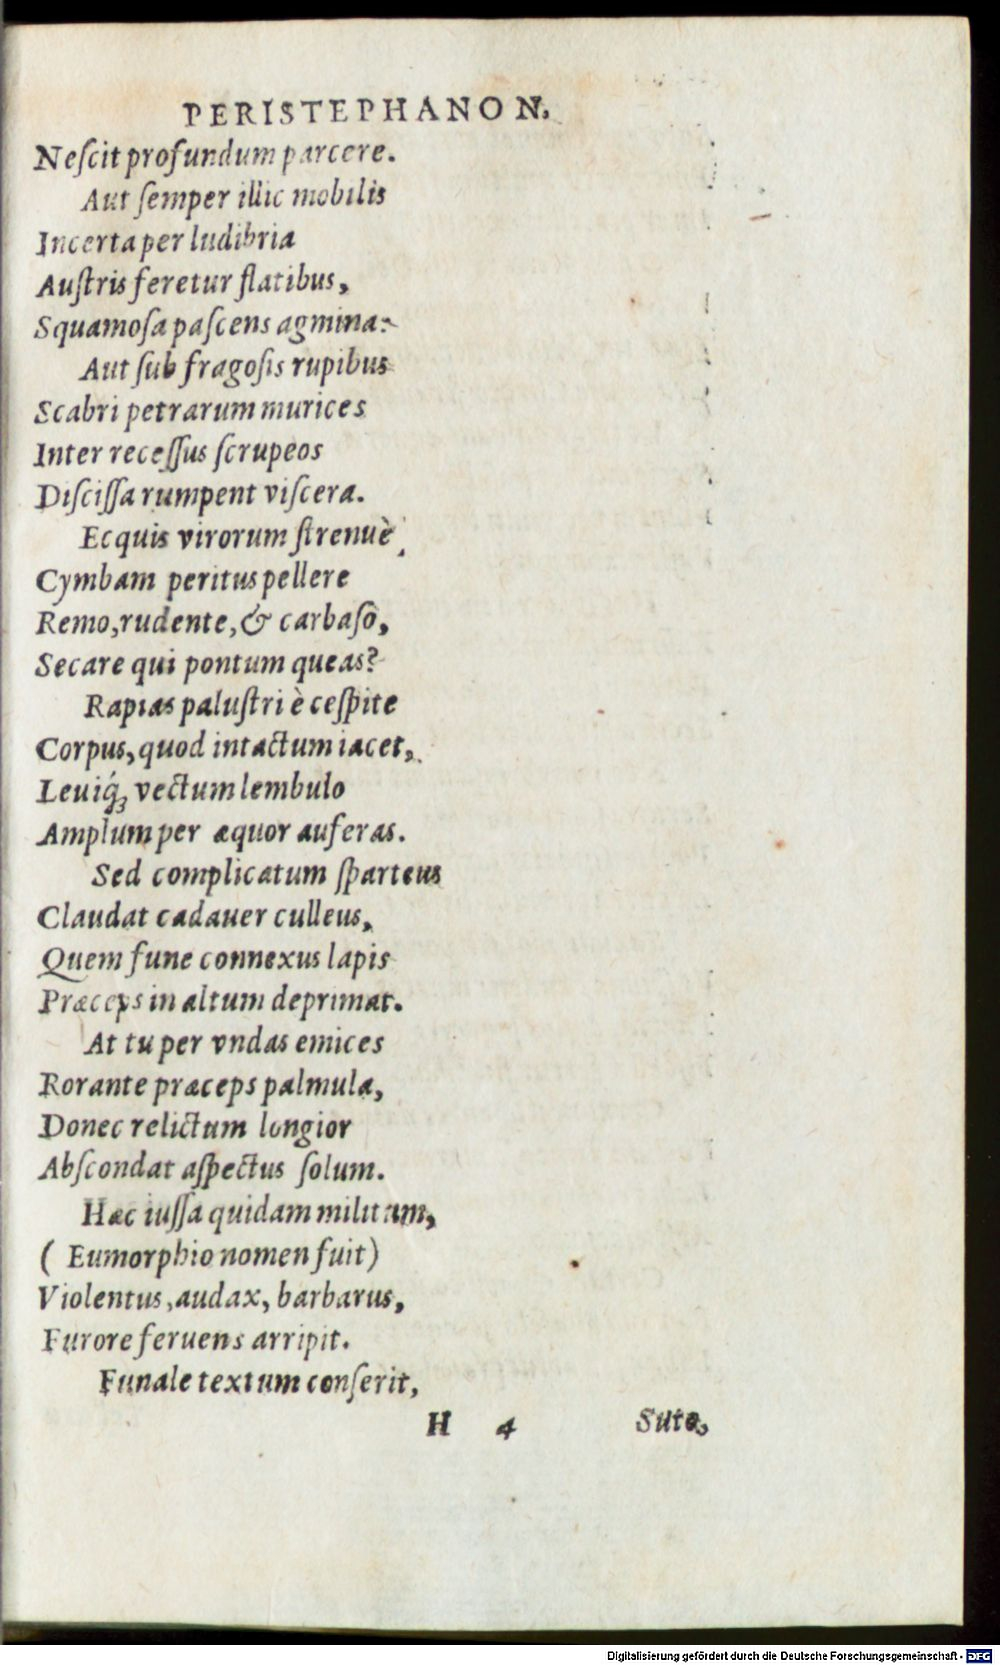 PERISTEPHANON.
Neſcit profundum parcere.
Aut ſemper illic mobilis
Incerta per ludibria
Auſtris feretur flatibus,
Squamoſa paſcens agmina:
Aut ſub fragoſis rupibus
Scabri petrarum murices
Inter receſſus ſcrupeos
Diſciſſa rumpent viſcera.
Ecquis virorum ſtrenuè
Cymbam peritus pellere
Remo, rudente, & carbaſo,
Secare qui pontum queas?
Rapias paluſtri è ceſpite
Corpus, quod intactum iacet,
Leuiq́; vectum lembulo
Amplum per æquor auferas.
Sed complicatum ſparteus
Claudat cadauer culleus,
Quem fune connexus lapis
Præceps in altum deprimat.
At tu per vndas emices
Rorante præceps palmula,
Donec relictum longior
Abſcondat aſpectus ſolum.
Hæc iuſſa quidam militum,
( Eumorphio nomen fuit)
Violentus, audax, barbarus,
Furore feruens arripit.
Funale textum conſerit,
H 4 Suto,
Digitalisierung gefördert durch die Deutsche Forschungsgemeinschaft - DFG